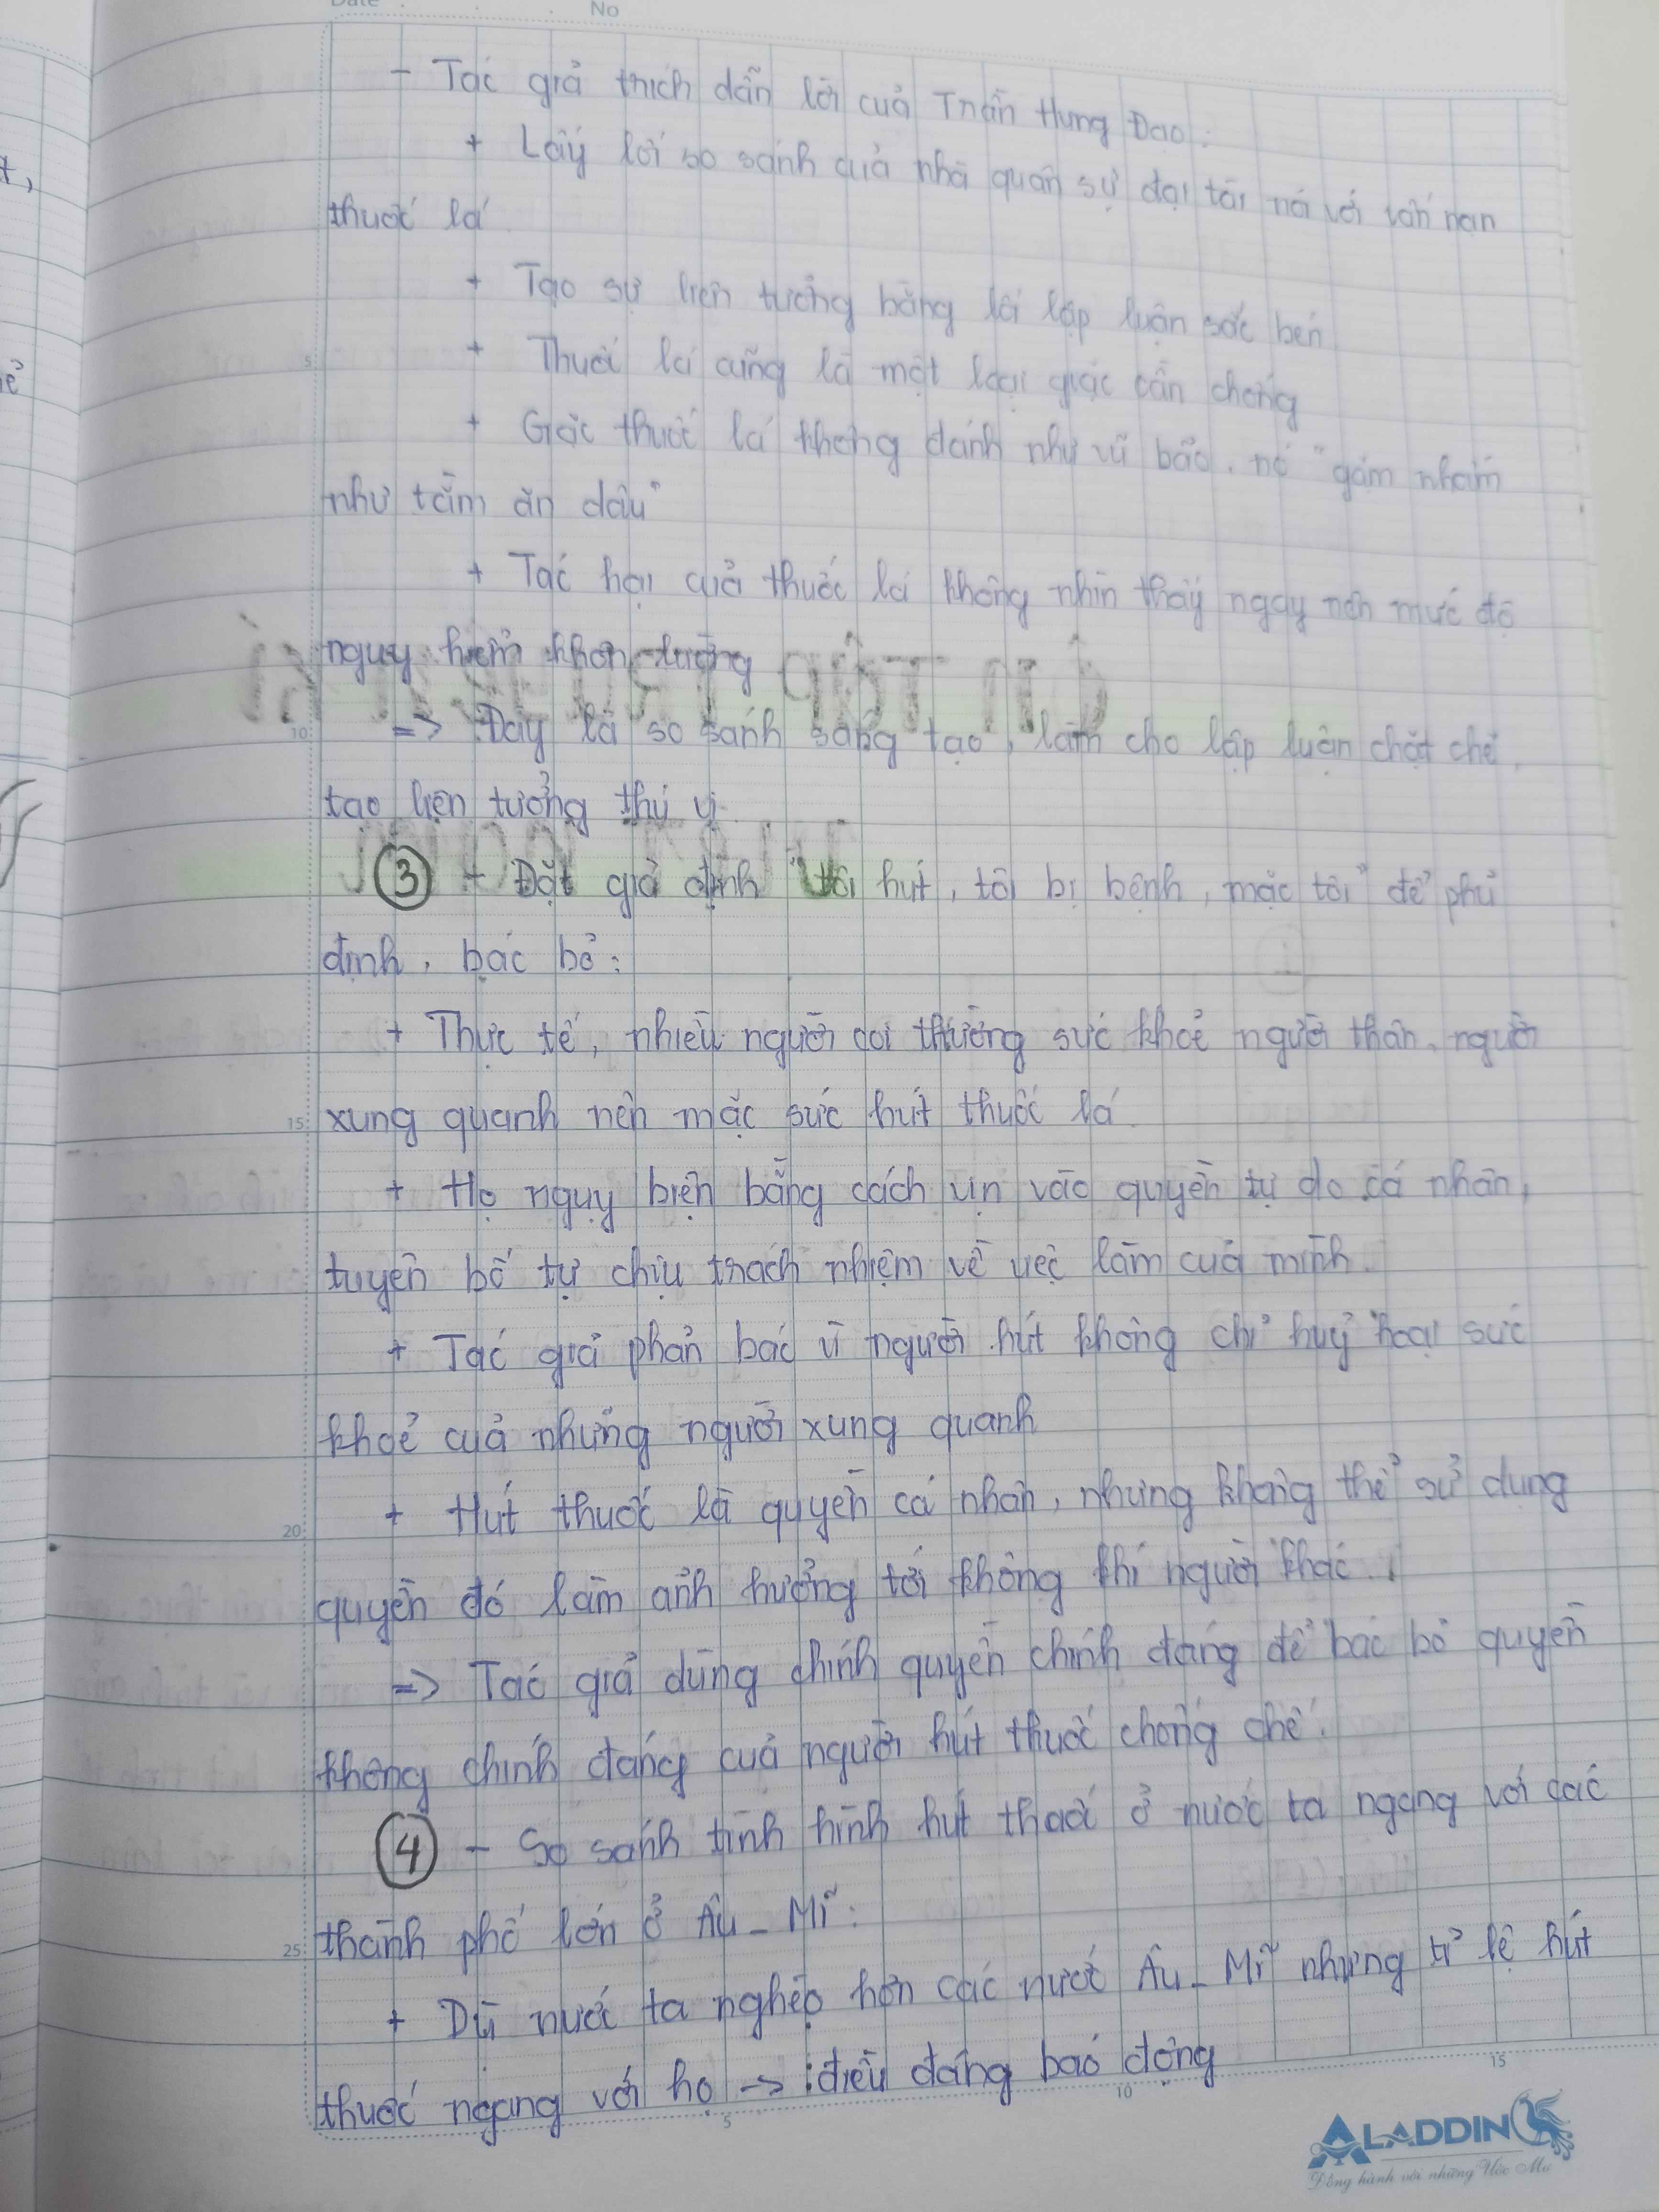 Date No
- Tác giả trích dẫn lời của Trần Hưng Đạo:
+ Lấy lối so sánh của nhà quân sự đại tài nói với nạn
thuốc lá
+ Tạo sự liên tưởng bằng lối lập luận sắc bén
+ Thuốc lá cũng là một loại giặc cần chống
+ Giặc thuốc lá không đánh như vũ bão, nó "gặm nhấm
như tằm ăn dâu"
+ Tác hại của thuốc lá không nhìn thấy ngay nên mức độ
nguy hiểm khôn lường
=> Đây là so sánh sáng tạo, làm cho lập luận chặt chẽ,
tạo liên tưởng thú vị.
③ - Đặt giả định "tôi hút, tôi bị bệnh, mặc tôi" để phủ
định, bác bỏ:
+ Thực tế, nhiều người coi thường sức khoẻ người thân, người
xung quanh nên mặc sức hút thuốc lá.
+ Họ nguỵ biện bằng cách vin vào quyền tự do cá nhân,
tuyên bố tự chịu trách nhiệm về việc làm của mình.
+ Tác giả phản bác vì người hút không chỉ huỷ hoại sức
khoẻ của những người xung quanh
+ Hút thuốc là quyền cá nhân, nhưng không thể sử dụng
quyền đó làm ảnh hưởng tới không khí người khác.
=> Tác giả dùng chính quyền chính đáng để bác bỏ quyền
không chính đáng của người hút thuốc chống chế.
④ - So sánh tình hình hút thuốc ở nước ta ngang với các
thành phố lớn ở Âu - Mĩ:
+ Dù nước ta nghèo hơn các nước Âu - Mĩ nhưng tỉ lệ hút
thuốc ngang với họ -> điều đáng báo động
5
10
15
20
25
5
10
15
ALADDIN
Đồng hành với những Ước Mơ